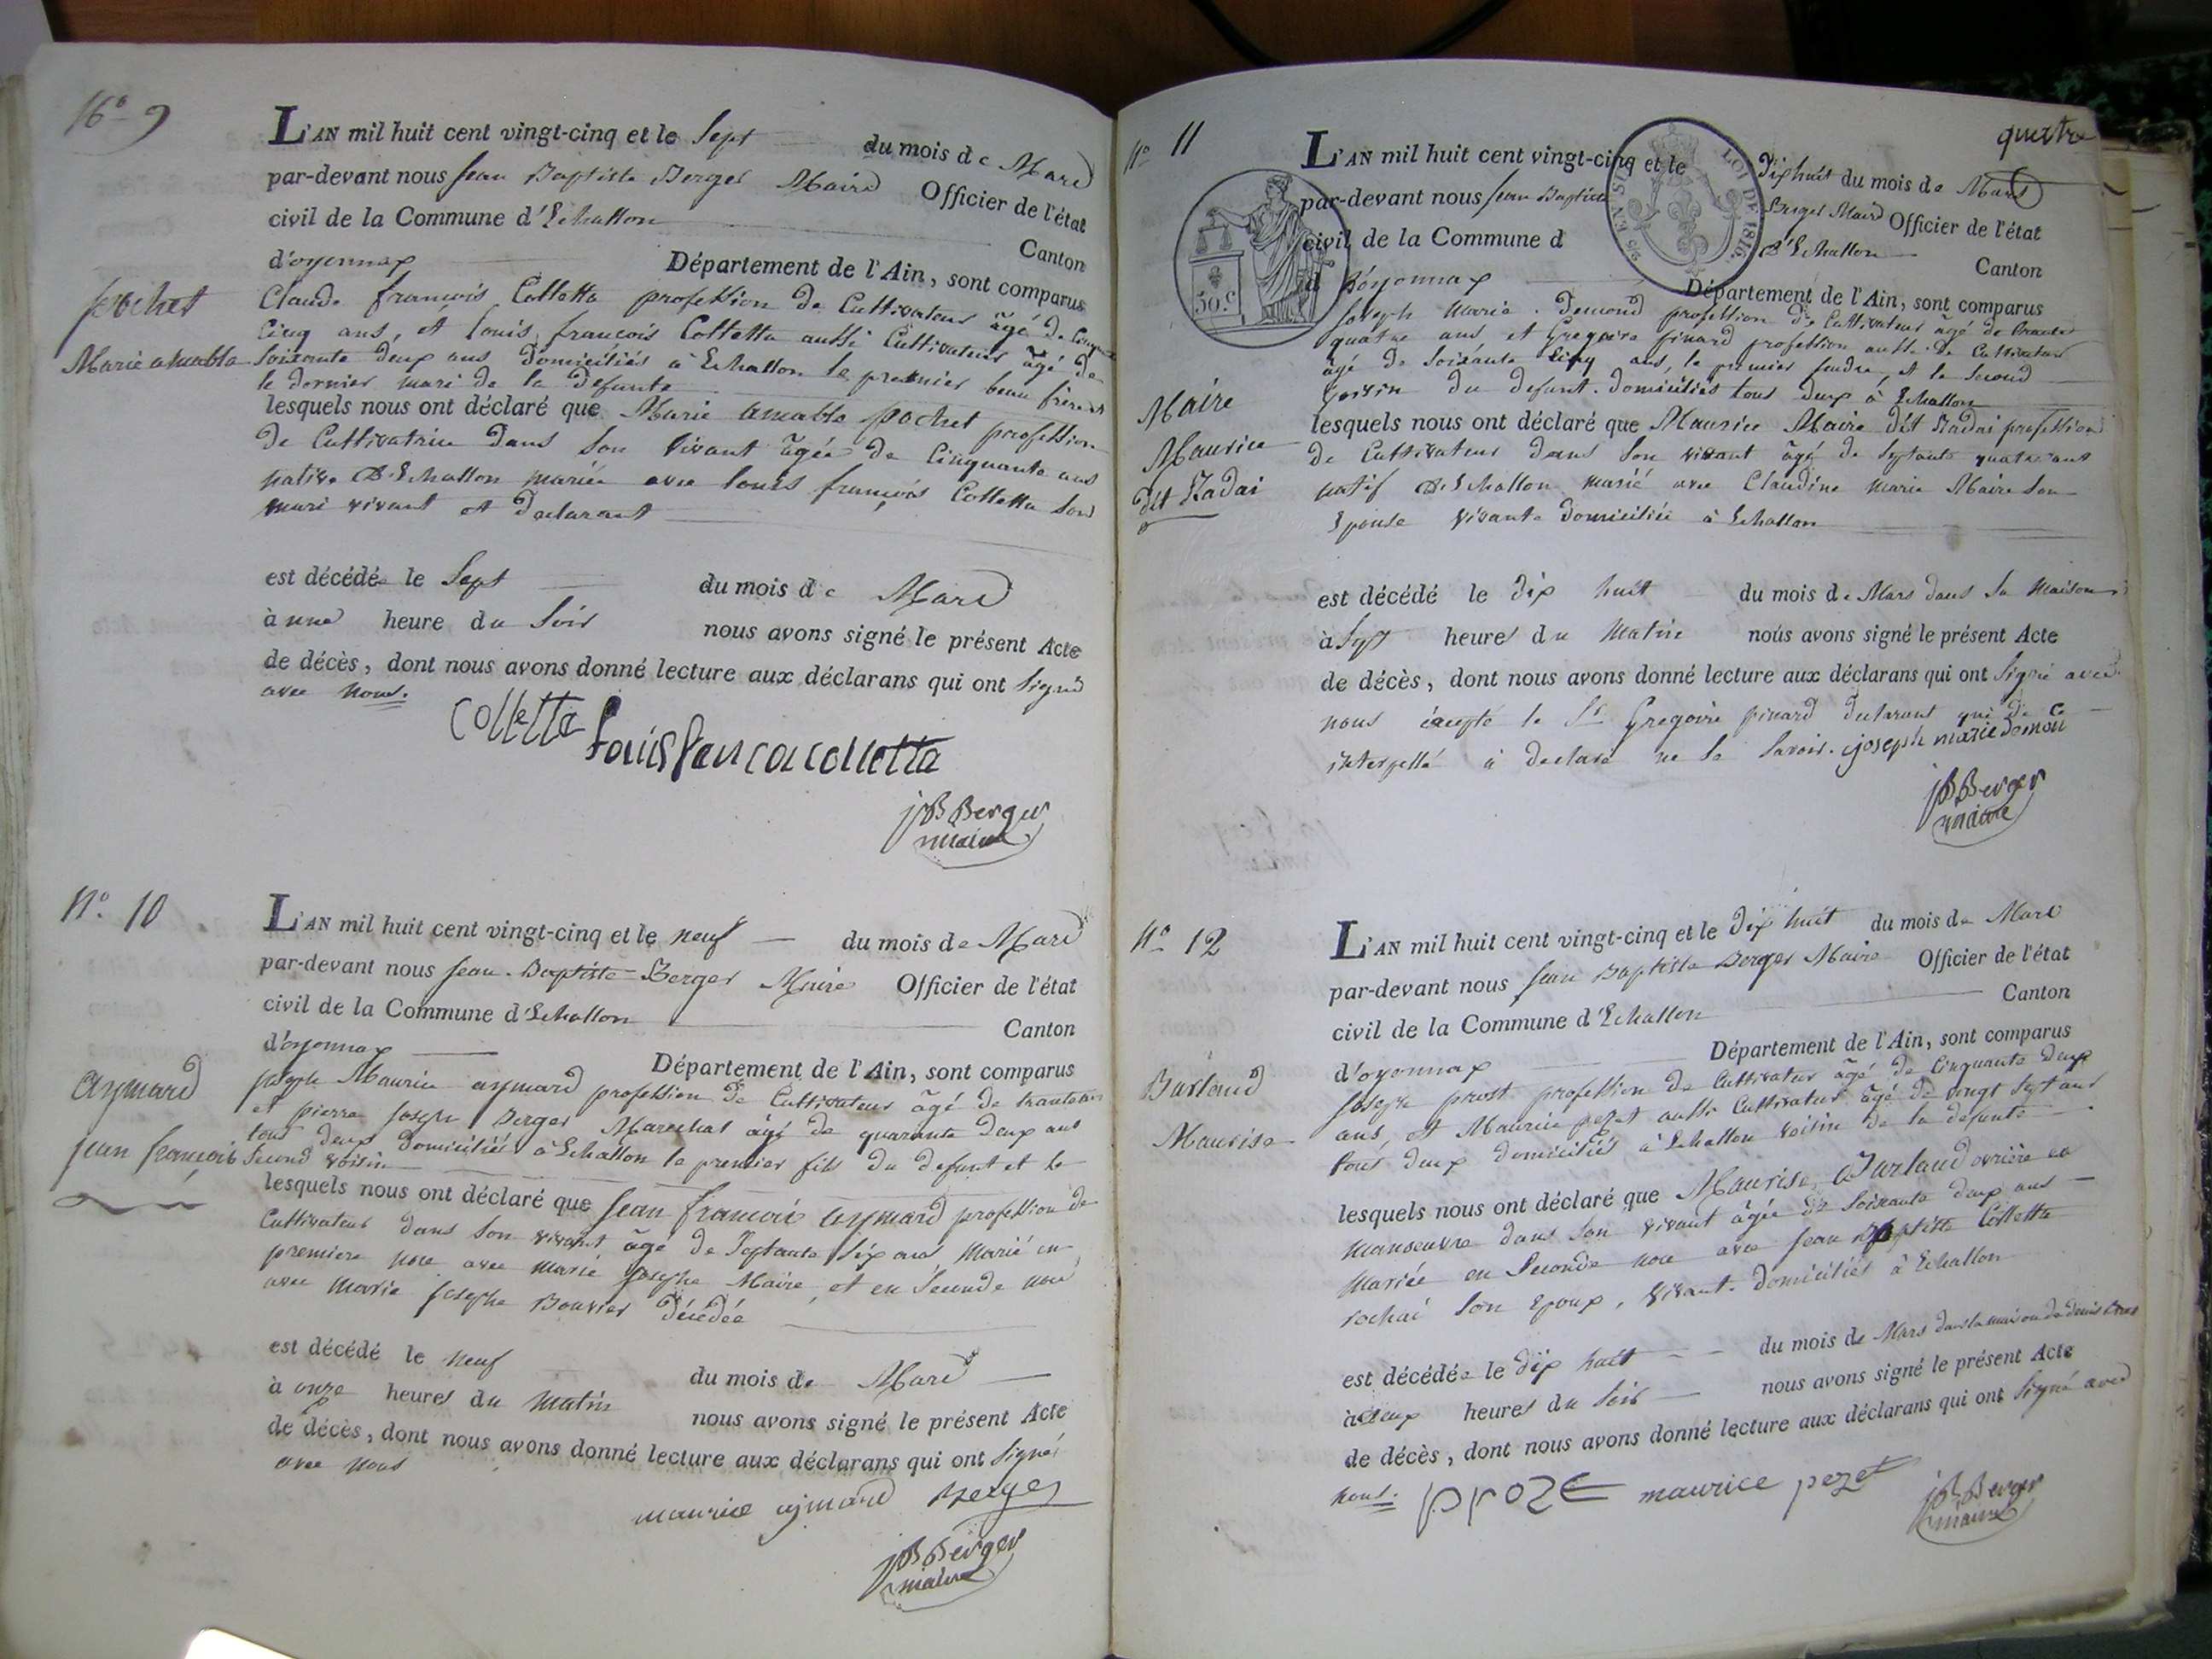 N° 9
L'AN mil huit cent vingt-cinq et le Sept du mois de Mars
par-devant nous Jean Baptiste Berger Maire Officier de l'état
civil de la Commune d'Echallon
Canton
d'oyonnax Département de l'Ain, sont comparus
Claude françois Colletta profession de Cultivateur âgé de Cinquante
Cinq ans, et louis françois Colletta aussi Cultivateur âgé de
Soixante deux ans domiciliés à Echallon le premier beau frère et
le dernier mari de la defunte
pochet
Marie amable
lesquels nous ont déclaré que Marie amable pochet profession
De Cultivatrice Dans Son vivant âgée de Cinquante ans
native D'Echallon mariée avec louis françois Colletta Son
mari vivant et Declarant
est décédée le Sept du mois de Mars
à une heure du Soir nous avons signé le présent Acte
de décès, dont nous avons donné lecture aux déclarans qui ont Signé
avec nous.
Colletta
Louis francoi colletta
JB Berger
maire
N° 10
L'AN mil huit cent vingt-cinq et le neuf du mois de Mars
par-devant nous Jean Baptiste Berger Maire Officier de l'état
civil de la Commune d'Echallon
Canton
d'oyonnax Département de l'Ain, sont comparus
Joseph Maurice aymard profession De Cultivateur âgé de trante ans
et pierre Joseph Berger Marechal âgé de quarante Deux ans
tous deux Domiciliés à Echallon le premier fils du defunt et le
Second voisin
aymard
jean françois
lesquels nous ont déclaré que Jean françois aymard profession de
Cultivateur dans Son vivant âgé de Septante Six ans Marié en
premiere noce avec marie Josephe Maire, et en Seconde noce
avec Marie Josephe Bouvier Décédée
est décédé le neuf du mois de Mars
à onze heures du Matin nous avons signé le présent Acte
de décès, dont nous avons donné lecture aux déclarans qui ont Signés
avec nous
maurice aymard Berger
JB Berger
maire
quatre
N° 11
L'AN mil huit cent vingt-cinq et le Dix huit du mois de Mars
par-devant nous Jean Baptiste Berger Maire Officier de l'état
civil de la Commune d D'Echallon
Canton
d D'oyonnax Département de l'Ain, sont comparus
LOI DE 1816
50 C.
Joseph Marie Demond profession De Cultivateur âgé de trante
quatre ans, et Gregoire pinard profession aussi De Cultivateur
âgé de Soixante Cinq ans, le premier Jendre, et le Second
voisin du defunt. domiciliés tous deux à Echallon
Maire
Maurice
dit Nadai
lesquels nous ont déclaré que Maurice Maire dit Nadai profession
De Cultivateur Dans Son vivant âgé de Septante quatre ans
natif D'Echallon marié avec Claudine Marie Maire Son
Epouse vivante Domiciliée à Echallon
est décédé le Dix huit du mois de Mars dans Sa Maison
à Sept heures du Matin nous avons signé le présent Acte
de décès, dont nous avons donné lecture aux déclarans qui ont Signé avec
nous éxcepté le Sr Gregoire pinard declarant qui De ce
interpellé à declaré ne le Savoir. joseph marie demon
JB Berger
maire
N° 12
L'AN mil huit cent vingt-cinq et le Dix huit du mois de Mars
par-devant nous Jean Baptiste Berger Maire Officier de l'état
civil de la Commune d'Echallon
Canton
d'oyonnax Département de l'Ain, sont comparus
Joseph prost profession de Cultivateur âgé de Cinquante deux
ans, et Maurice pezet aussi Cultivateur âgé de vingt Sept ans
tous deux domiciliés à Echallon voisin de la defunte
Burlaud
Maurise
lesquels nous ont déclaré que Maurise Burlaud ovrière en
Manoeuvre dans Son vivant âgée de Soixante deux ans
Mariée en Seconde noce avec Jean Baptiste Colletta
rochai Son Epoux, vivant. domiciliés à Echallon
est décédée le Dix huit du mois de Mars dans la maison de denis
à deux heures du Soir nous avons signé le présent Acte
de décès, dont nous avons donné lecture aux déclarans qui ont Signé avec
nous.
maurice pezet
JB Berger
maire